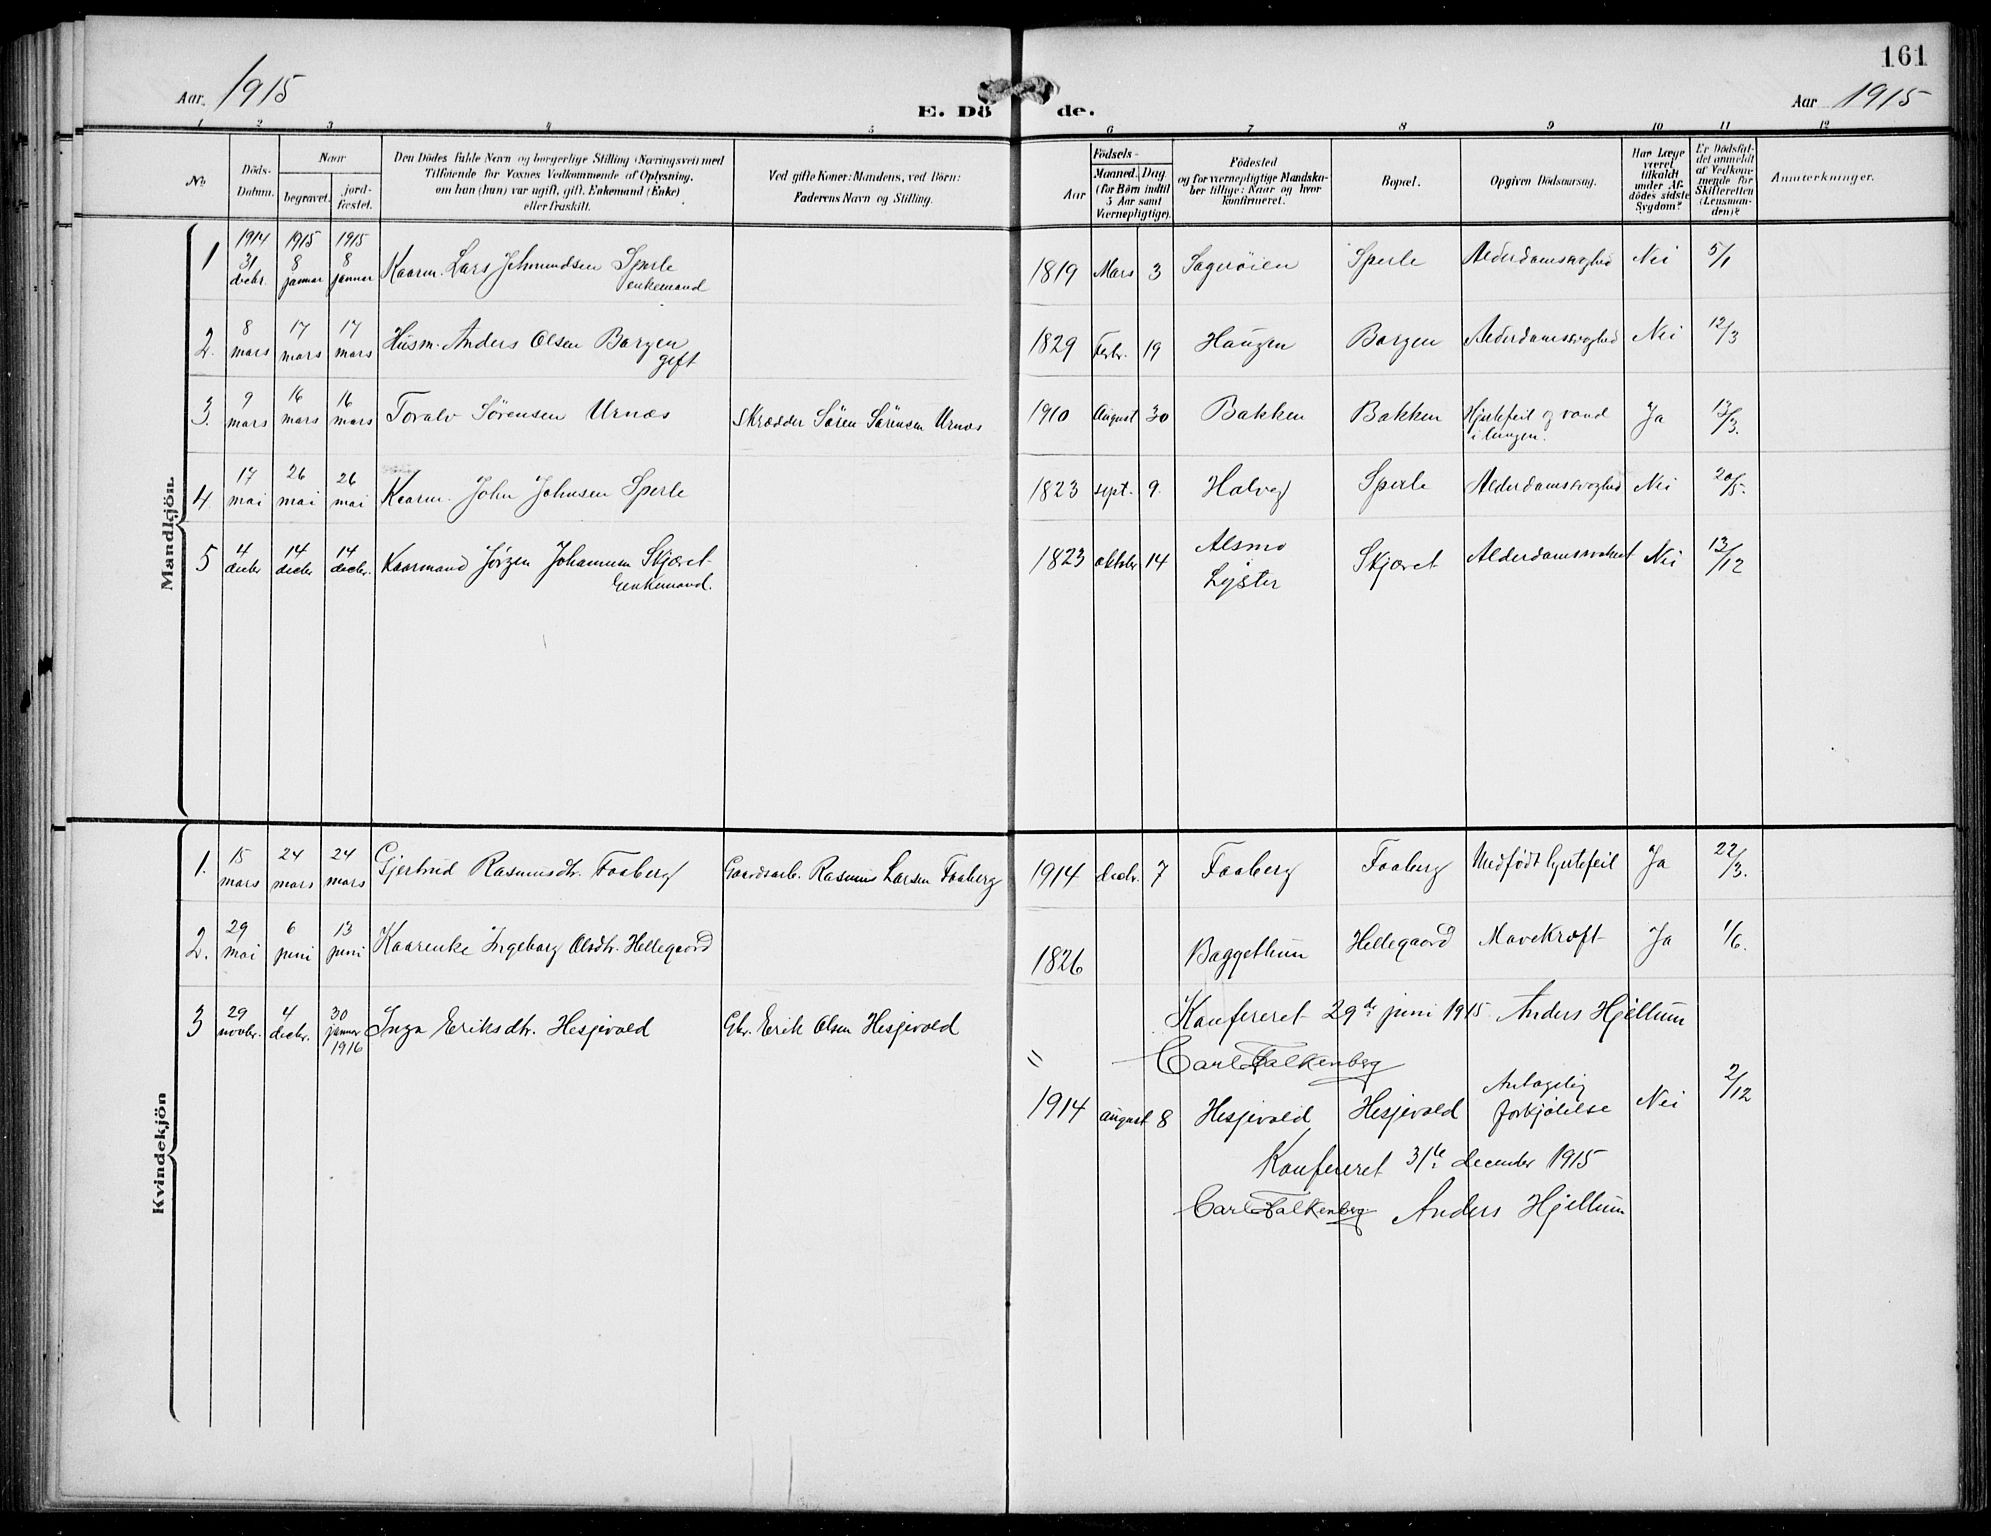 161
Aar. 1915
E. Dö de.
Aar 1915
1 2 3 4 5 6 7 8 9 10 11 12
No.
Döds-Datum.
Naar
begravet.
jord-fæstet.
Den Dödes fulde Navn og borgerlige Stilling (Næringsvei) med
Tilföiende for Voxnes Vedkommende af Oplysning,
om han (hun) var ugift, gift, Enkemand (Enke)
eller fraskilt.
Ved gifte Koner: Mandens, ved Börn:
Faderens Navn og Stilling.
Födsels-
Aar
Maaned. Dag
(for Börn indtil
5 Aar samt
Værnepligtige).
Födested
og for værnepligtige Mandska-
ber tillige: Naar og hvor
konfirmeret.
Bopæl.
Opgiven Dödsaarsag.
Har Læge
været
tilkaldt
under Af-
dödes sidste
Sygdom?
Er Dödsfal-
det anmeldt
af Vedkom-
mende for
Skifteretten
(Lensman-
den)?
Anmærkninger.
Mandkjön.
1 1914 31 decbr. 1915 8 januar 1915 8 januar Kaarm. Lars Jehmundsen Sperle enkemand 1819 Mars 3 Sperle Alderdomssvaghed Nei 5/1
2. 8 mars 17 mars 17 mars Husm. Anders Olsen Borgen gift 1829 Febr. 19 Haugen Borgen Alderdomssvaghed Nei 12/3
3. 9 mars 16 mars 16 mars Toralv Sörensen Urnæs Skrædder Sören Sörensen Urnæs 1910 August 30 Bakken Bakken Hjertefeil og vand i lungen. Ja 13/3.
4. 17 mai 26 mai 26 mai Kaarm. John Johnsen Sperle 1823 sept. 9. Sperle Alderdomssvaghed Nei 20/5.
5 4 decbr 14 decbr 14 decbr. Kaarmand Jörgen Johannsen Skjæret Enkemand. 1823 oktobr 14 Alsmo Lyster Skjæret Nei 13/12
Kvindekjön
1. 15 mars 24 mars 24 mars Gjertrud Rasmusdtr. Faaberg Gaardsarb. Rasmus Larsen Faaberg 1914 decbr. 7 Faaberg Faaberg Medfödt hjertefeil Ja 22/3.
2. 29 mai 6 juni 13 juni Kaarenke Ingeborg Olsdtr. Hellegaard 1826 Baggethun Hellegaard Mavekræft Ja 1/6.
Konfereret 29de juni 1915. Anders Hjellum
Carl Falkenberg
3 29 novbr. 4 decbr. 30 januar 1916 Inga Eriksdtr. Hesjevold Gbr. Erik Olsen Hesjevold 1914 august 8 Hesjevold Hesjevold Antagelig forkjölelse Nei 2/12
Konfereret 31te december 1915
Carl Falkenberg Anders Hjellum